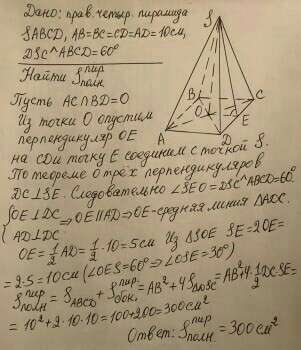 Дано: прав. четыр. пирамида
SABCD, AB=BC=CD=AD=10см,
DSC^ABCD=60°
Найти S пир полн.
Пусть AC∩BD=O
Из точки O опустим
перпендикуляр OE
на CD и точку E соединим с точкой S.
По теореме о трёх перпендикуляров
DC⊥SE. Следовательно ∠SEO=DSC^ABCD=60°
{OE⊥DC
AD⊥DC ⇒OE∥AD⇒OE-средняя линия ΔADC.
OE=1/2 AD=1/2·10=5см Из ΔSOE SE=2OE=
=2·5=10см (∠OES=60°⇒∠OSE=30°)
S пир полн.=S ABCD+S пир бок.=AB²+4S ΔDSC=AB²+4·1/2 DC·SE=
=10²+2·10·10=100+200=300см²
Ответ: S пир полн.=300см²
S
B
C
O
E
A
D